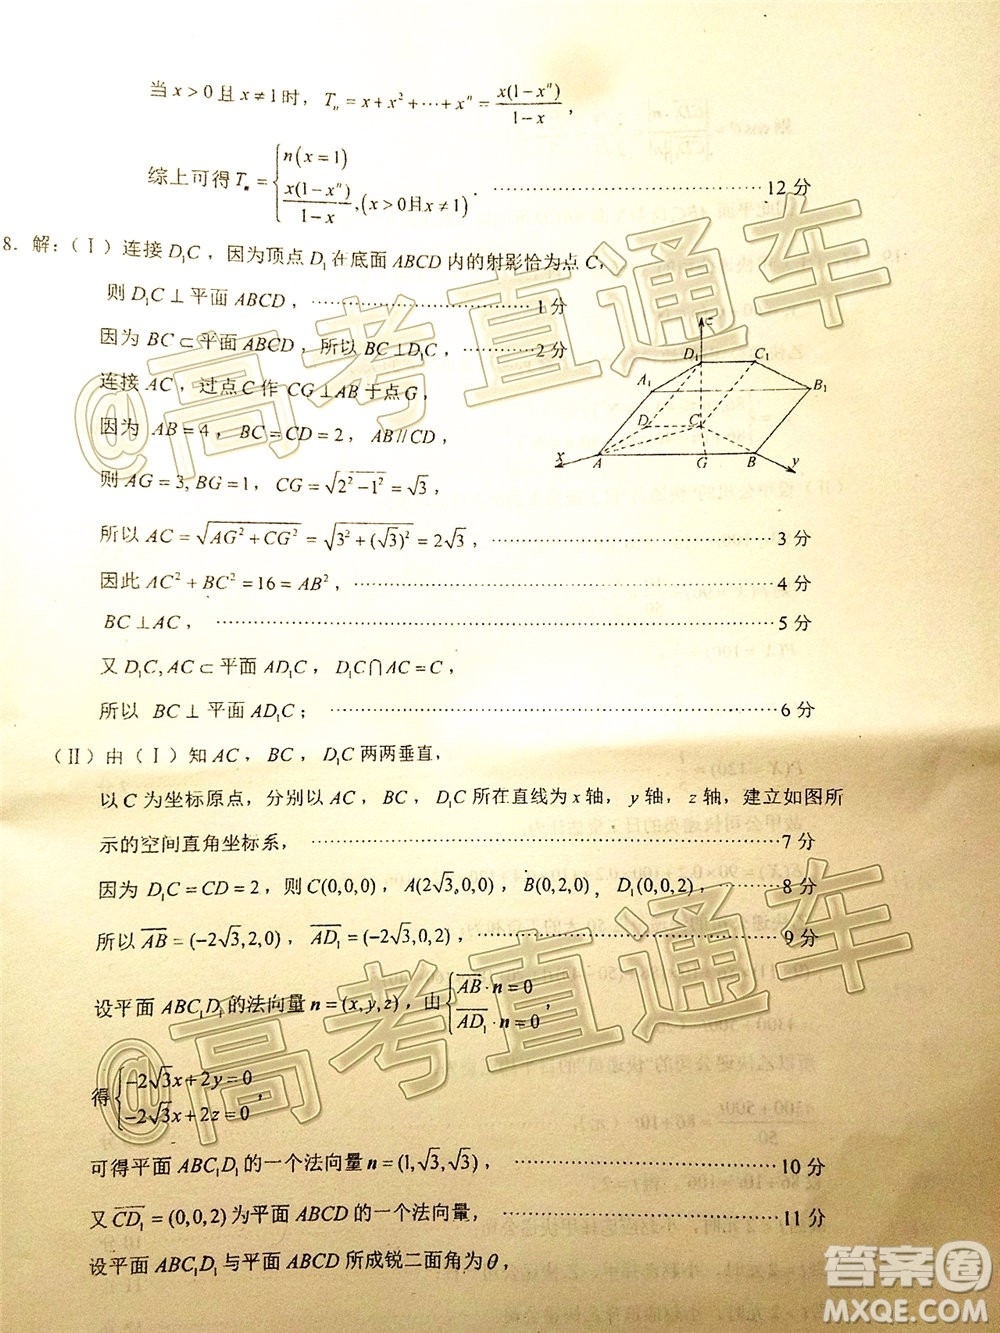 当 x>0 且 x≠1 时, Tₙ = x+x²+⋯+xⁿ = x(1-xⁿ)/(1-x),
综上可得 Tₙ = { n(x=1)
x(1-xⁿ)/(1-x),(x>0且x≠1) . ………… 12 分
8. 解:(Ⅰ)连接 D₁C,因为顶点 D₁ 在底面 ABCD 内的射影恰为点 C,
则 D₁C⊥平面 ABCD, ………… 1 分
因为 BC⊂平面 ABCD, 所以 BC⊥D₁C, ………… 2 分
连接 AC, 过点 C 作 CG⊥AB 于点 G,
因为 AB=4, BC=CD=2, AB//CD,
则 AG=3, BG=1, CG=√(2²-1²)=√3,
所以 AC=√(AG²+CG²)=√(3²+(√3)²)=2√3, ………… 3 分
因此 AC²+BC²=16=AB², ………… 4 分
BC⊥AC, ………… 5 分
又 D₁C, AC⊂平面 AD₁C, D₁C∩AC=C,
所以 BC⊥平面 AD₁C; ………… 6 分
z
D₁ C₁
A₁ B₁
D C
x A G B y
(Ⅱ)由(Ⅰ)知 AC, BC, D₁C 两两垂直,
以 C 为坐标原点, 分别以 AC, BC, D₁C 所在直线为 x 轴, y 轴, z 轴, 建立如图所
示的空间直角坐标系, ………… 7 分
因为 D₁C=CD=2, 则 C(0,0,0), A(2√3,0,0), B(0,2,0), D₁(0,0,2), ………… 8 分
所以 AB=(-2√3,2,0), AD₁=(-2√3,0,2), ………… 9 分
设平面 ABC₁D₁ 的法向量 n=(x,y,z), 由 { AB·n=0
AD₁·n=0 ,
得 { -2√3x+2y=0
-2√3x+2z=0 ,
可得平面 ABC₁D₁ 的一个法向量 n=(1,√3,√3), ………… 10 分
又 CD₁=(0,0,2) 为平面 ABCD 的一个法向量, ………… 11 分
设平面 ABC₁D₁ 与平面 ABCD 所成锐二面角为 θ,
@高考直通车
@高考直通车
答案圈
MXQE.COM